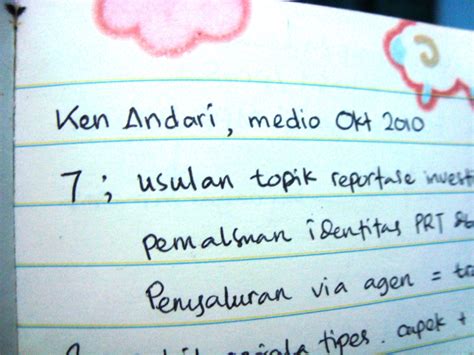 Ken Andari, medio Okt 2010
7; usulan topik reportase investi
pemalsuan identitas PRT
Penyaluran via agen =
gejala tipes. capek +